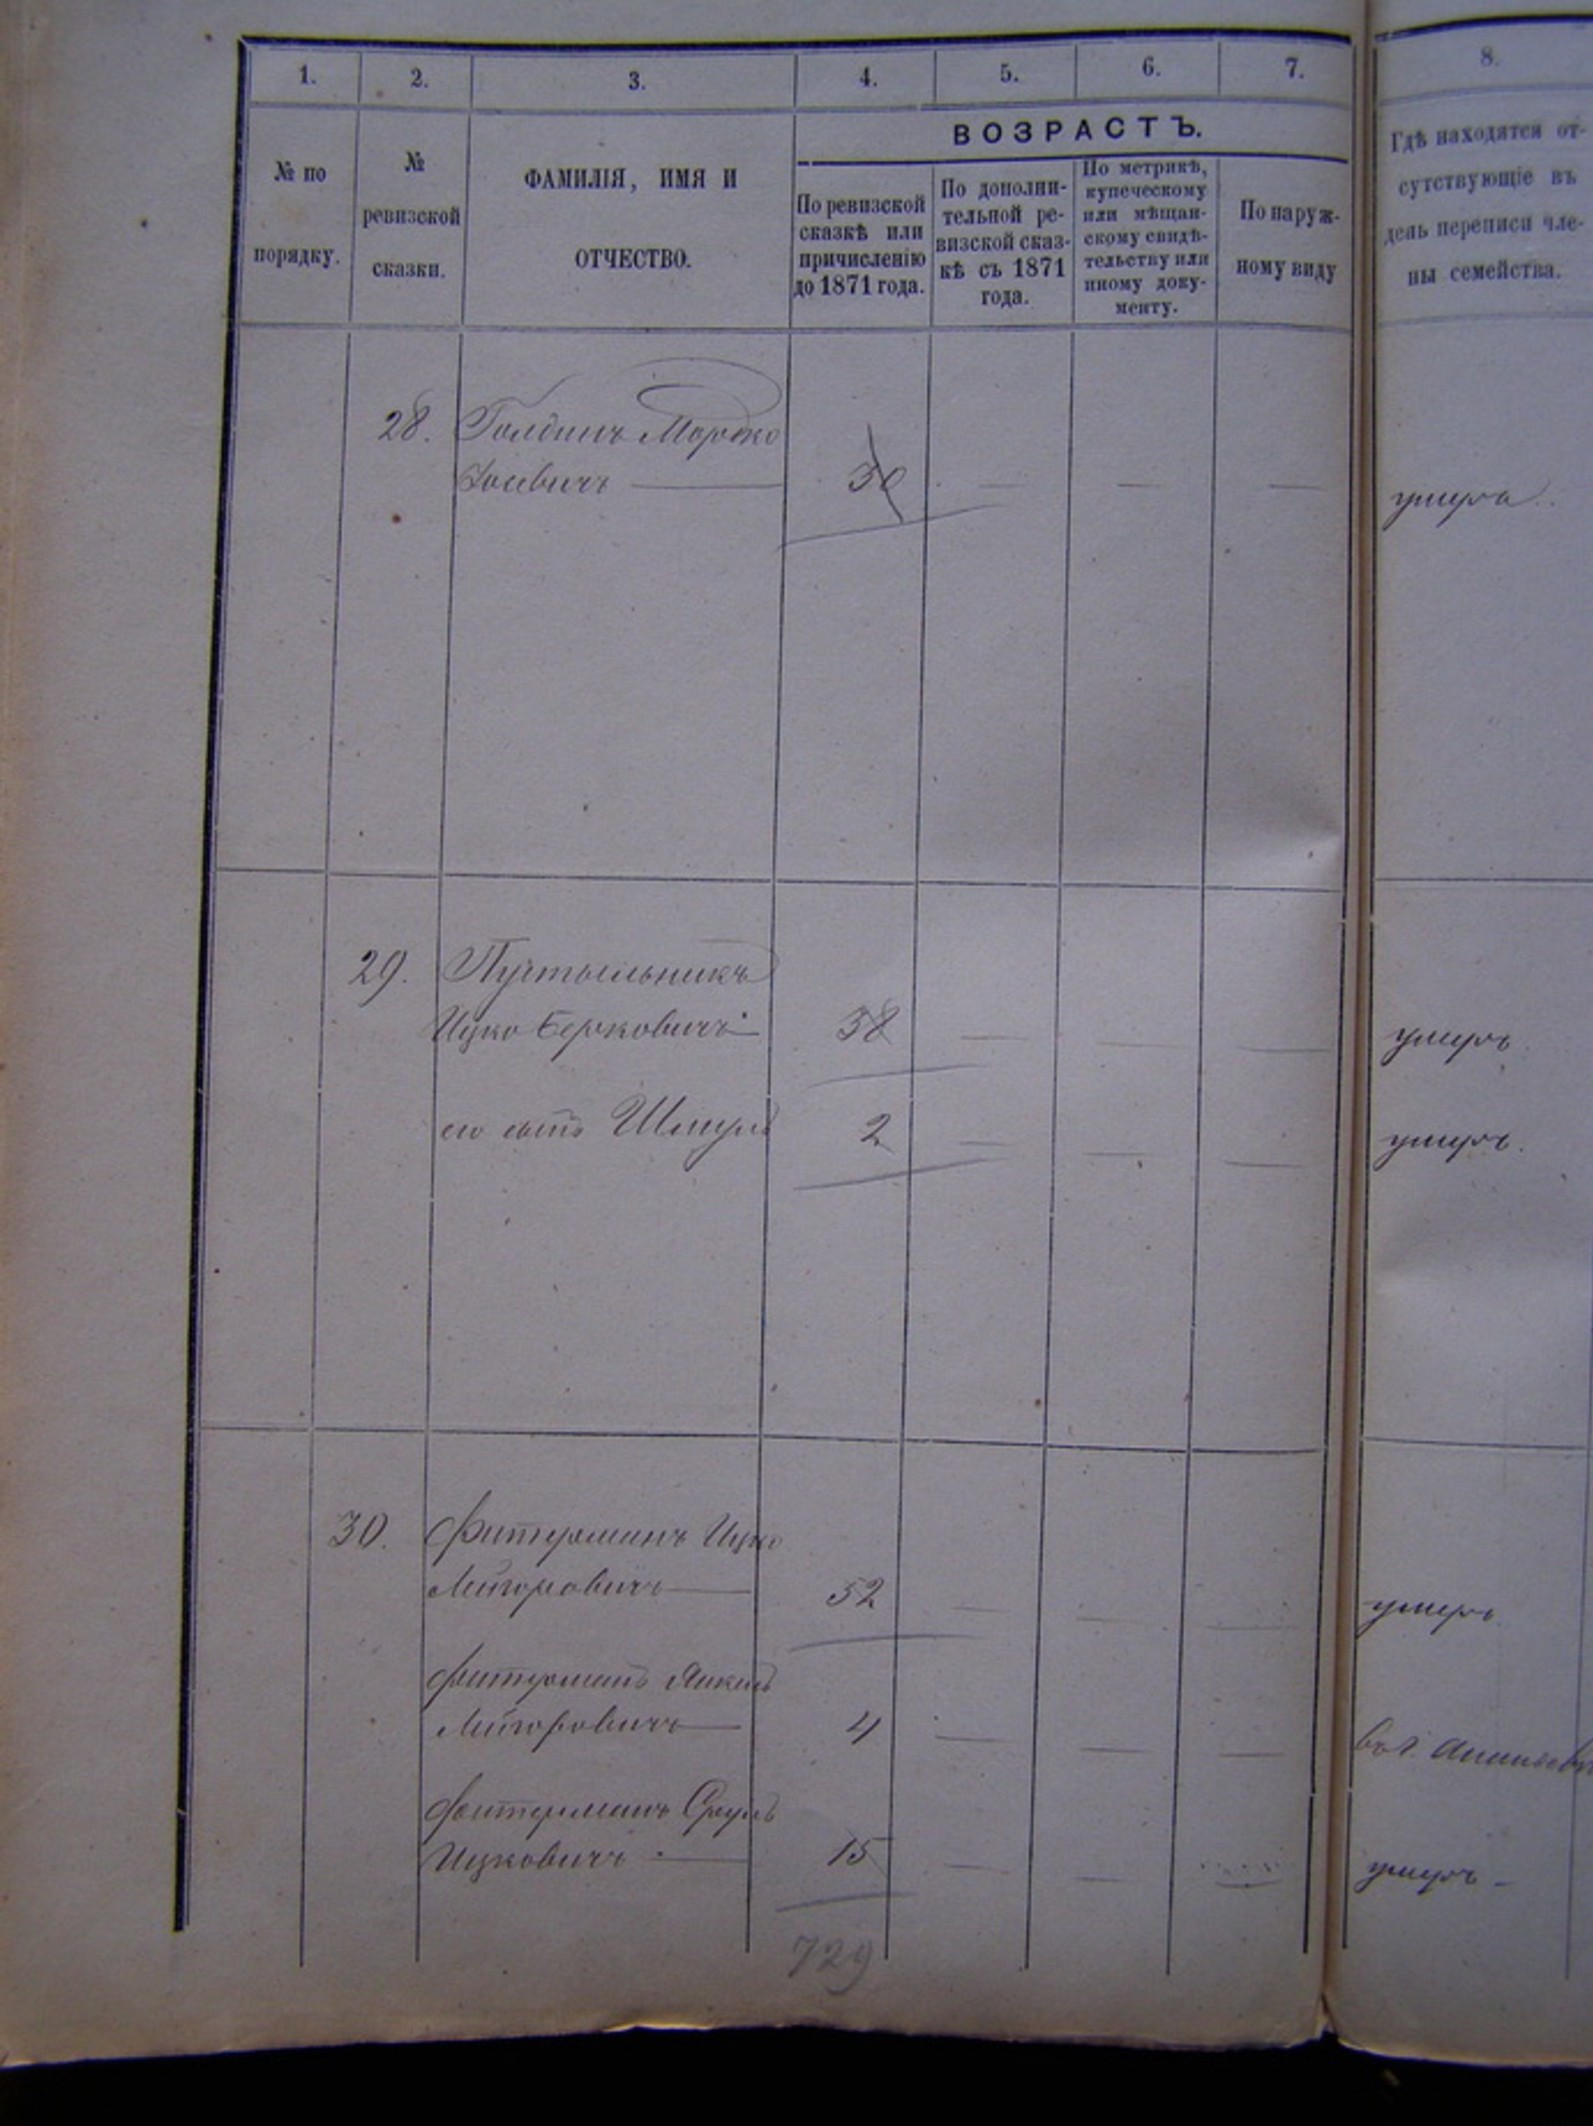 1. 2. 3. 4. 5. 6. 7. 8.
ВОЗРАСТЪ.
№ по
порядку.
№
ревизской
сказки.
ФАМИЛІЯ, ИМЯ И
ОТЧЕСТВО.
По ревизской
сказкѣ или
причисленію
до 1871 года.
По дополни-
тельной ре-
визской сказ-
кѣ съ 1871
года.
По метрикѣ,
купеческому
или мѣщан-
скому свидѣ-
тельству или
иному доку-
менту.
По наруж-
ному виду
Гдѣ находятся от-
сутствующіе въ
день переписи чле-
ны семейства.
28. Голдинъ Мордко
30 —
29. Пустыльникъ
Ицко Берковичъ 38 — — — умеръ
его сынъ Шмулъ 2 — — — умеръ.
30. Фитерманъ Ицко
Лейзоровичъ — 52 — — — умеръ
Фитерманъ Янкель
Лейзоровичъ — 4 — — — въ г. Ананьевѣ
Фитерманъ Сруль
Ицковичъ — 15 — — — умеръ —
729